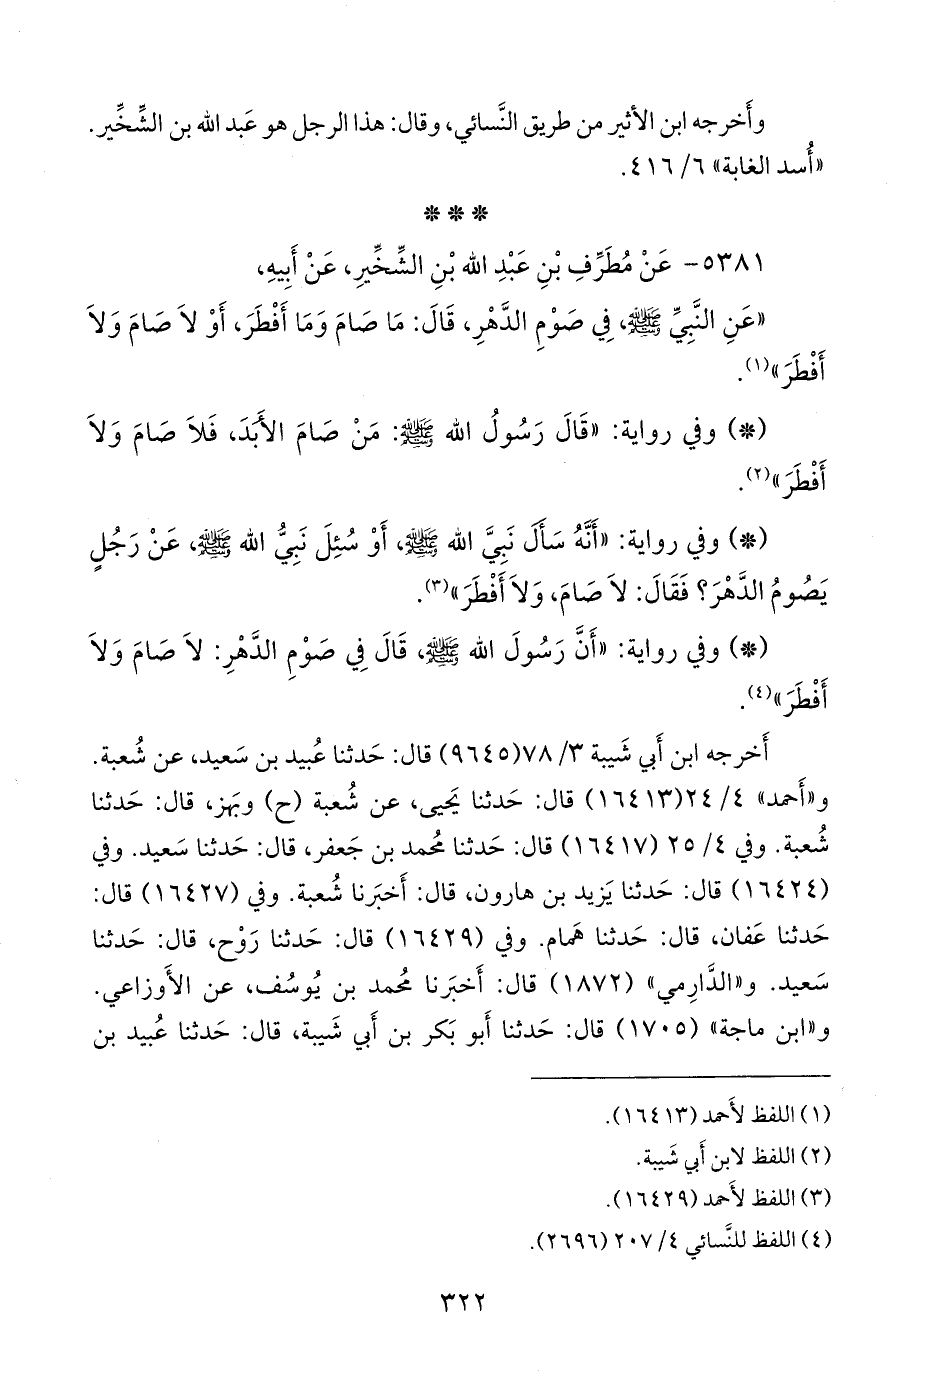 وأَخرجه ابن الأثير من طريق النَّسائي، وقال: هذا الرجل هو عَبد الله بن الشِّخِّير.
«أُسد الغابة» ٦/ ٤١٦.
* * *
٥٣٨١- عَنْ مُطَرِّفِ بْنِ عَبْدِ الله بْنِ الشِّخِّيرِ، عَنْ أَبِيهِ،
«عَنِ النَّبِيِّ ﷺ، فِي صَوْمِ الدَّهْرِ، قَالَ: مَا صَامَ وَمَا أَفْطَرَ، أَوْ لاَ صَامَ وَلاَ
أَفْطَرَ»(١).
(*) وفي رواية: «قَالَ رَسُولُ الله ﷺ: مَنْ صَامَ الأَبَدَ، فَلاَ صَامَ وَلاَ
أَفْطَرَ»(٢).
(*) وفي رواية: «أَنَّهُ سَأَلَ نَبِيَّ الله ﷺ، أَوْ سُئِلَ نَبِيُّ الله ﷺ، عَنْ رَجُلٍ
يَصُومُ الدَّهْرَ؟ فَقَالَ: لاَ صَامَ، وَلاَ أَفْطَرَ»(٣).
(*) وفي رواية: «أَنَّ رَسُولَ الله ﷺ، قَالَ فِي صَوْمِ الدَّهْرِ: لاَ صَامَ وَلاَ
أَفْطَرَ»(٤).
أَخرجه ابن أَبي شَيبة ٣/ ٧٨(٩٦٤٥) قال: حَدثنا عُبيد بن سَعيد، عن شُعبة.
و«أَحمد» ٤/ ٢٤(١٦٤١٣) قال: حَدثنا يَحيى، عن شُعبة (ح) وبَهز، قال: حَدثنا
شُعبة. وفي ٤/ ٢٥ (١٦٤١٧) قال: حَدثنا مُحمد بن جَعفر، قال: حَدثنا سَعيد. وفي
(١٦٤٢٤) قال: حَدثنا يَزيد بن هارون، قال: أَخبَرنا شُعبة. وفي (١٦٤٢٧) قال:
حَدثنا عَفان، قال: حَدثنا هَمام. وفي (١٦٤٢٩) قال: حَدثنا رَوْح، قال: حَدثنا
سَعيد. و«الدَّارِمي» (١٨٧٢) قال: أَخبَرنا مُحمد بن يُوسُف، عن الأَوزاعي.
و«ابن ماجة» (١٧٠٥) قال: حَدثنا أَبو بَكر بن أَبي شَيبة، قال: حَدثنا عُبيد بن
(١) اللفظ لأَحمد (١٦٤١٣).
(٢) اللفظ لابن أَبي شَيبة.
(٣) اللفظ لأَحمد (١٦٤٢٩).
(٤) اللفظ للنَّسائي ٤/ ٢٠٧ (٢٦٩٦).
٣٢٢